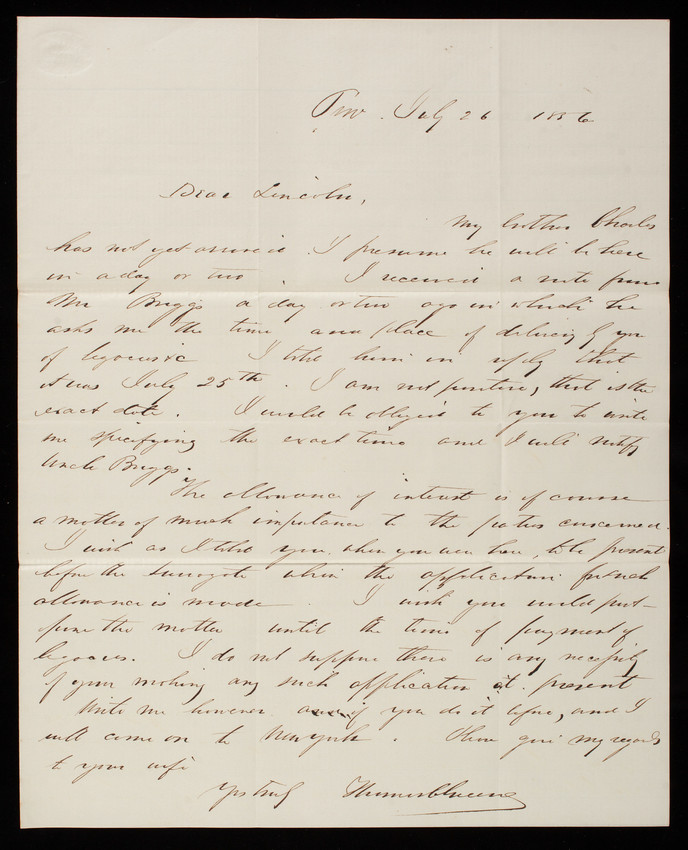 Prov. July 26 1856
Dear Lincoln,
My brother Charles
has not yet arrived. I presume he will be here
in a day or two. I received a note from
Mr Briggs a day or two ago in which he
asks me the time and place of delivery of you
of legacies &c I told him in reply that
it was July 25th. I am not positive, that is the
exact date. I would be obliged to you to write
me specifying the exact time and I will notify
Uncle Briggs.
The allowance of interest is of course
a matter of much importance to the parties concerned.
I wish as I told you when you were here, to be present
before the surrogate when the application for such
allowance is made. I wish you would post-
pone the matter until the time of payment of
legacies. I do not suppose there is any necessity
of your making any such application at present
Write me however if you do it before, and I
will come on to New York. give my regards
to your wife
Yrs truly Thomas